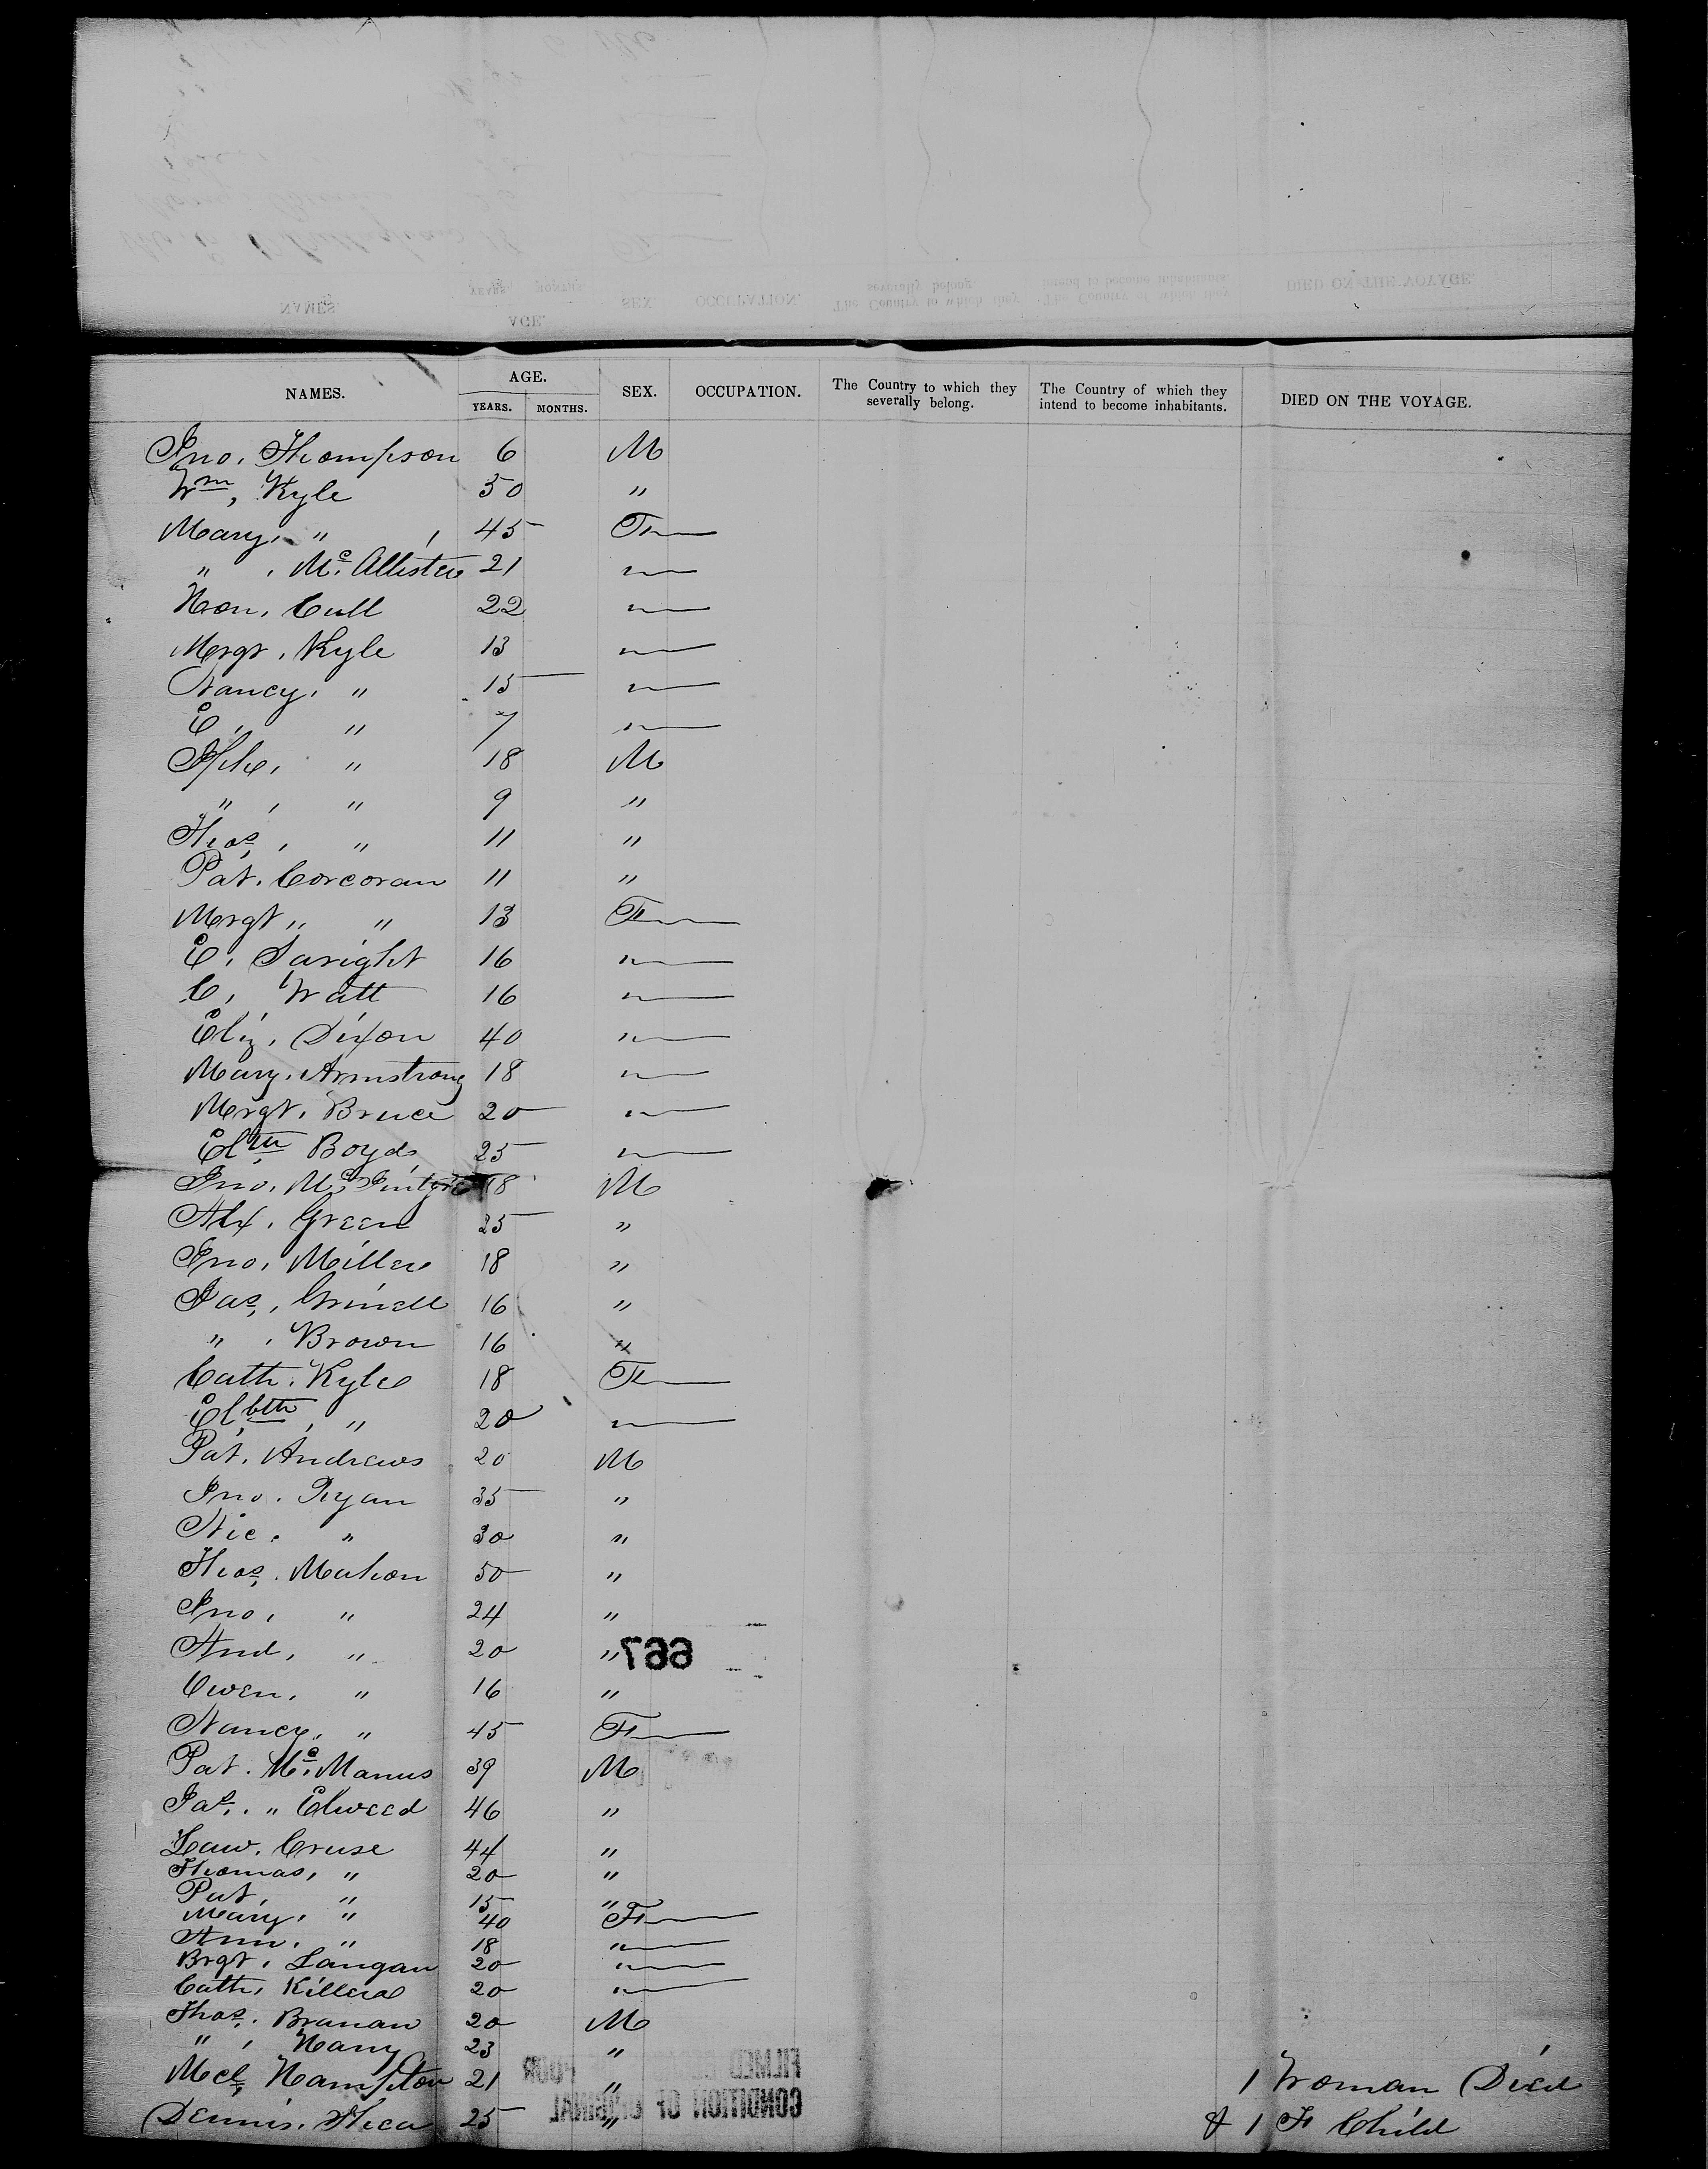 NAMES. AGE. SEX. OCCUPATION. The Country to which they severally belong. The Country of which they intend to become inhabitants. DIED ON THE VOYAGE.
YEARS. MONTHS.
Jno. Thompson 6 M
Wm, Kyle 50 "
Mary, " 45 F
" , Mc. Allister 21 "
Hon, Cull 22 "
Mrgt, Kyle 13 "
Nancy, " 15 "
E, " 7 "
Jph, " 18 M
" , " 9 "
Thos, " 11 "
Pat. Corcoran 11 "
Mrgt, " 13 F
E, 16 "
C, Watt 16 "
Eliz, Dixon 40 "
Mary, Armstrong 18 "
Mrgt, Bruce 20 "
Elth Boyd, 25 "
Jno. Mc. Intyre 18 M
Alx, Green 25 "
Jno, Miller 18 "
Jas, Grinell 16 "
" , Brown 16 "
Cath. Kyle 18 F
Elbth, " 20 "
Pat. Andrews 20 M
Jno. Ryan 35 "
Nic. " 30 "
Thos. Mahon 50 "
Jno, " 24 "
And, " 20 "
667
Owen, " 16 "
Nancy, " 45 F
Pat. Mc. Manus 39 M
Jas. " Elweed 46 "
Law. Cruse 44 "
Thomas, " 20 "
Pat, " 15 "
Mary, " 40 F
Ann. " 18 "
Brgt, Langan 20 "
Cath, 20 "
Thos. Branan 20 M
" , 23 "
Mcl, Hampton 21 " 1 Woman Died
Dennis. 25 " & 1 F Child
FILMED POOR
CONDITION OF ORIGINAL